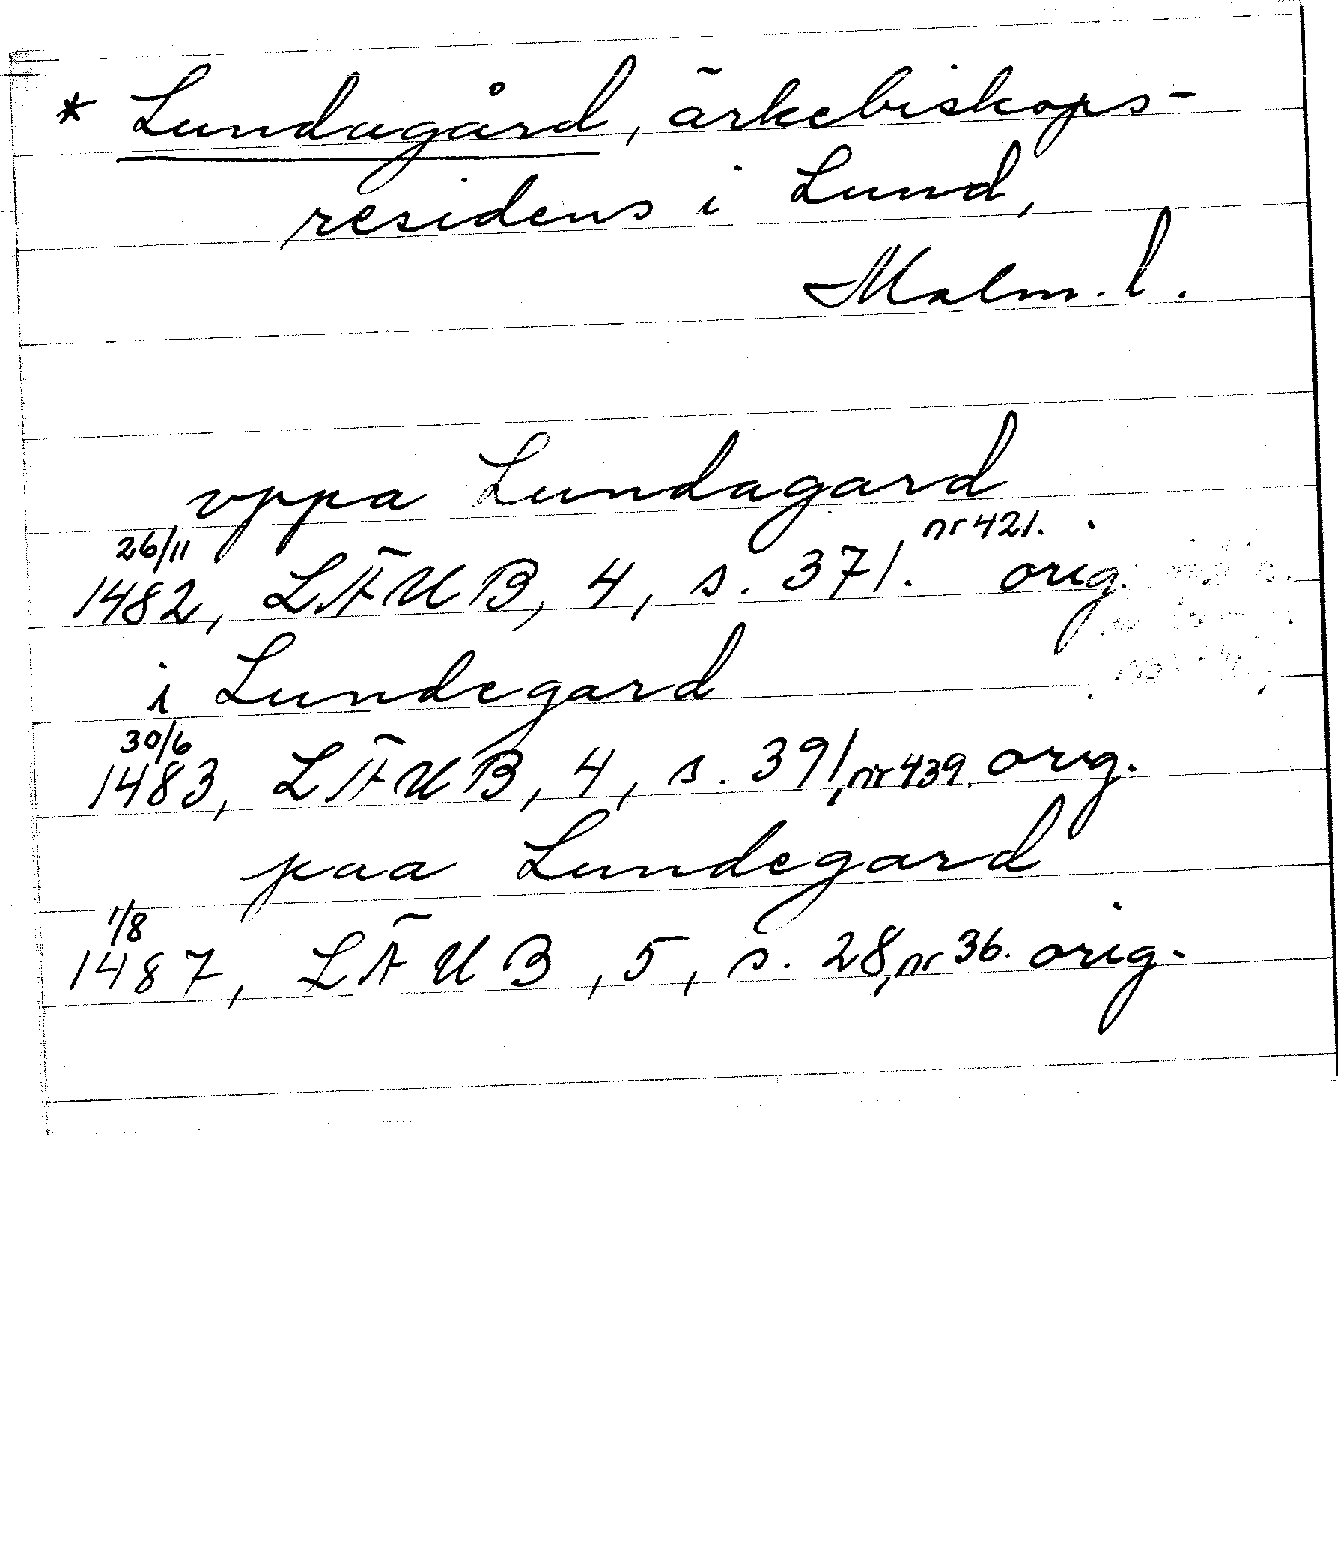 * Lundagård, ärkebiskops-
residens i Lund,
Malm. l.
vppa Lundagard
26/11 1482, LÄUB, 4, s. 371. nr 421. orig.
i Lundegard
30/6 1483, LÄUB, 4, s. 391, nr 439. orig.
paa Lundegard
1/8 1487, LÄUB, 5, s. 28, nr 36. orig.